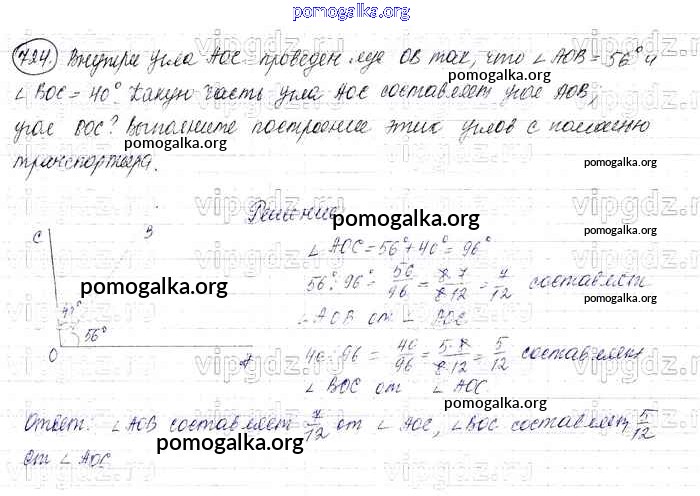 pomogalka.org
724. Внутри угла АОС проведен луч ОВ так, что ∠ АОВ = 56° и
pomogalka.org
∠ ВОС = 40°. Какую часть угла АОС составляет угол АОВ,
угол ВОС? Выполните построение этих углов с помощью
транспортира.
pomogalka.org
Решение
pomogalka.org
C B
∠ АОС = 56° + 40° = 96°
56° : 96° = 56/96 = 8·7/8·12 = 7/12 составляет
pomogalka.org
∠ АОВ от ∠ АОС
40°
56°
O A
40 : 96 = 40/96 = 5·8/8·12 = 5/12 составляет
pomogalka.org
∠ ВОС от ∠ АОС
pomogalka.org
Ответ: ∠АОВ составляет 7/12 от ∠ АОС, ∠ВОС составляет 5/12
pomogalka.org
от ∠ АОС